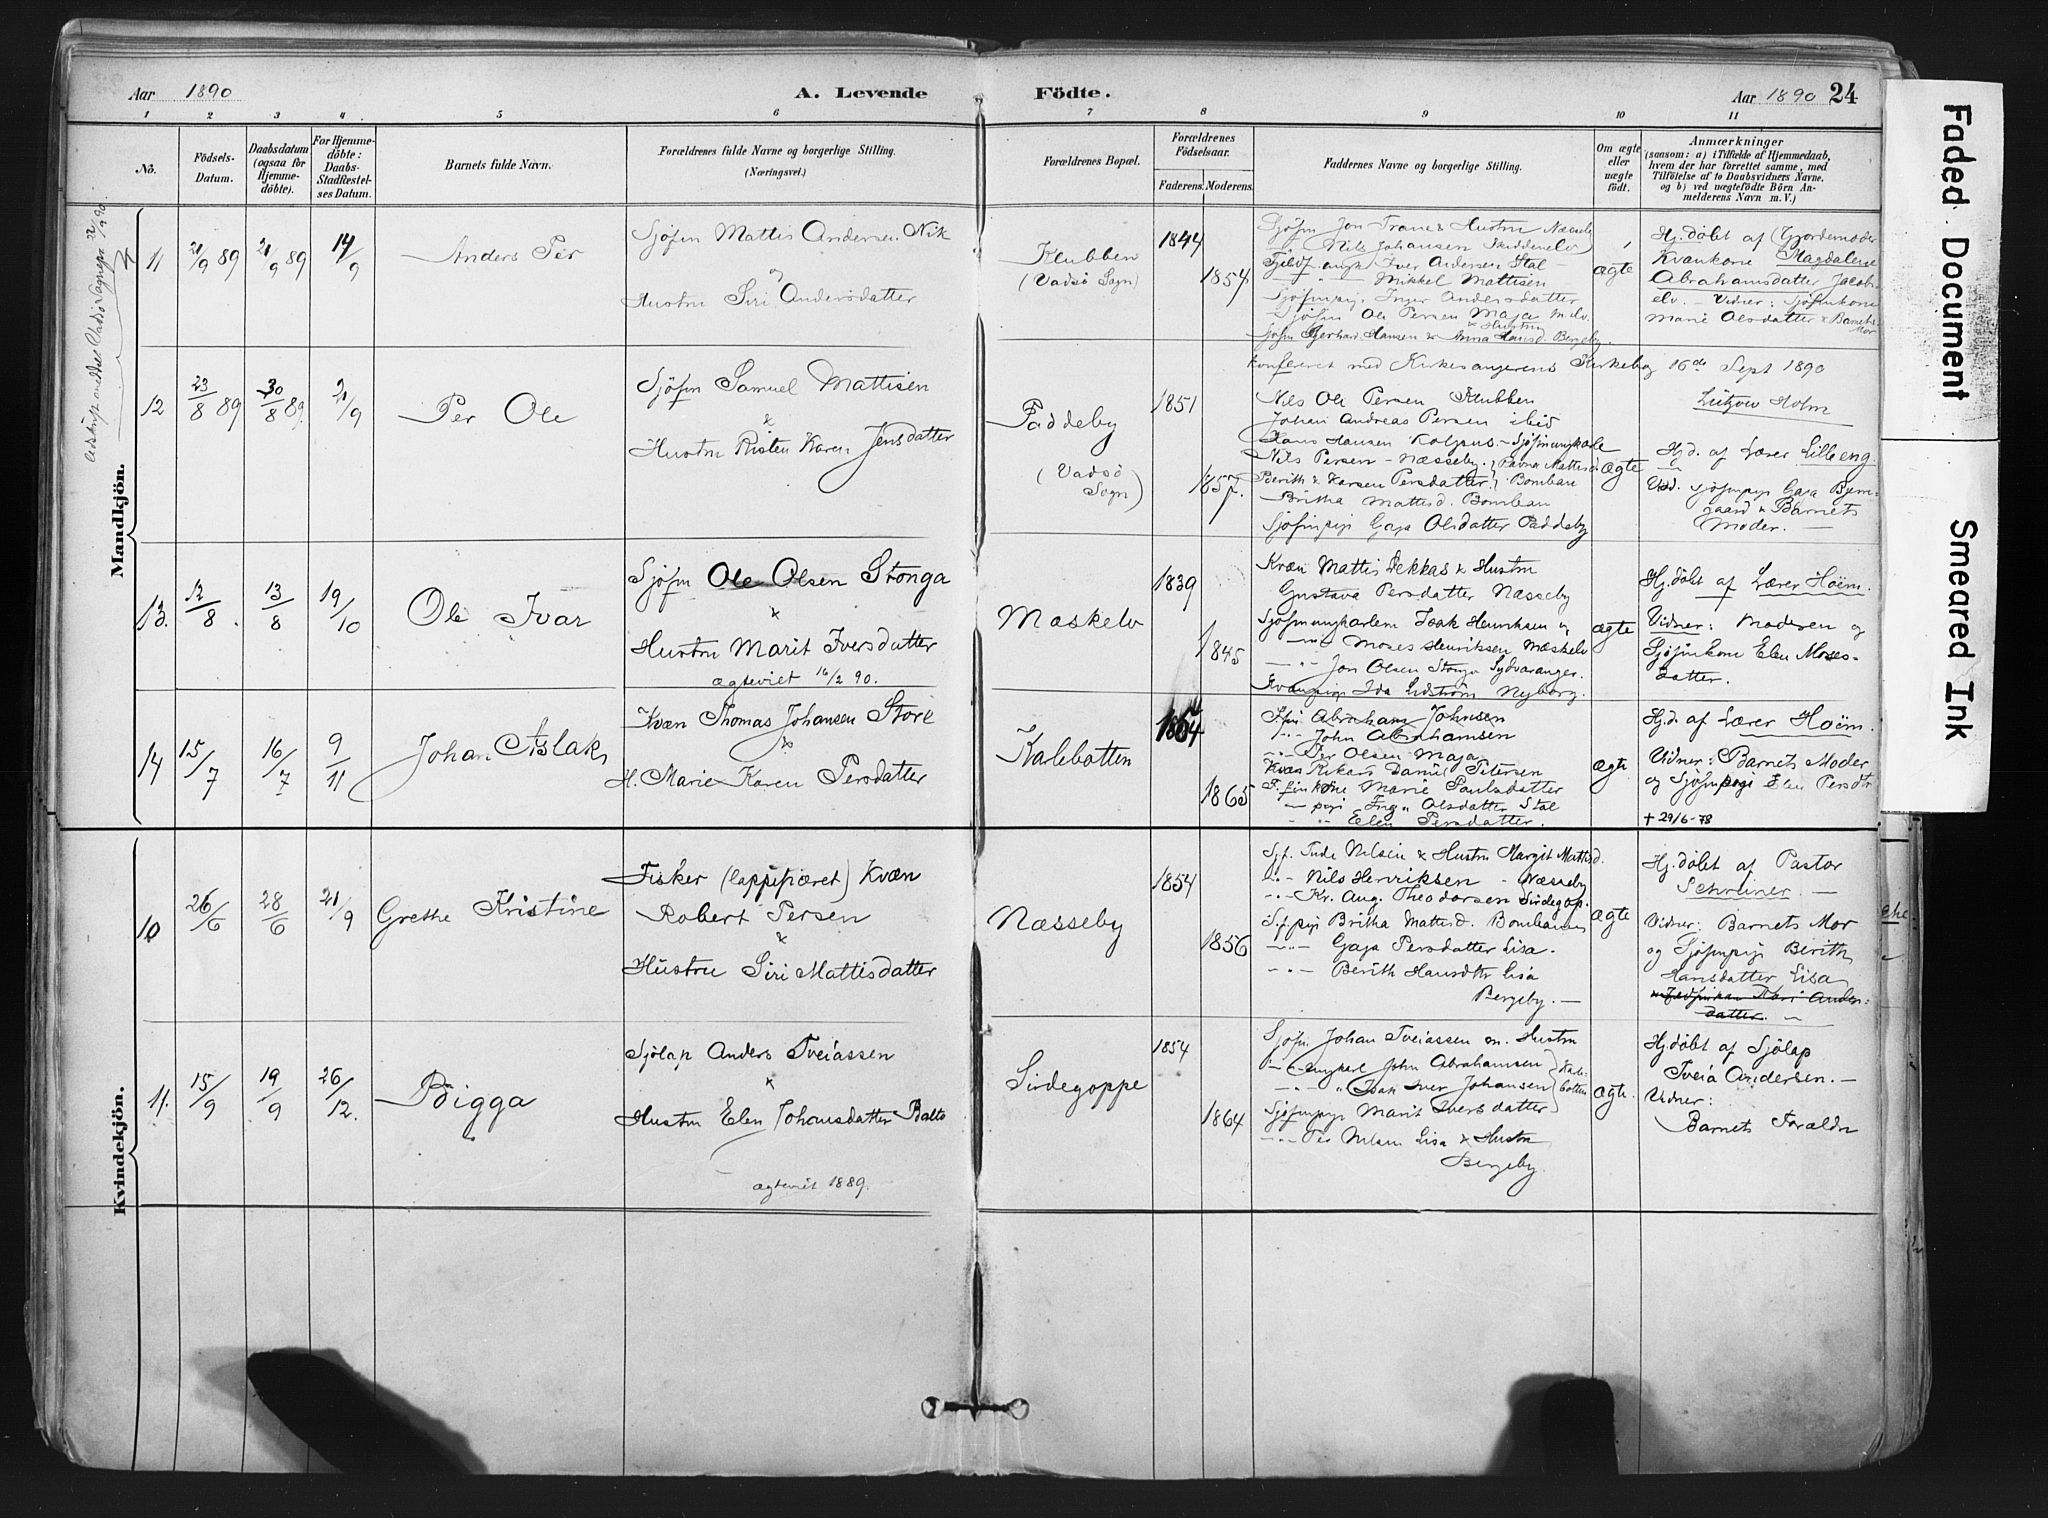 Aar 1890
A. Levende
Födte.
Aar 1890 24
1 2 3 4 5 6 7 8 9 10 11
No.
Födsels-
Datum.
Daabsdatum
(ogsaa for
Hjemme-
döbte).
For Hjemme-
döbte:
Daabs-
Stadfæstel-
ses Datum.
Barnets fulde Navn.
Forældrenes fulde Navne og borgerlige Stilling.
(Næringsvei.)
Forældrenes Bopæl.
Forældrenes
Födselsaar.
Faderens. Moderens.
Faddernes Navne og borgerlige Stilling.
Om ægte
eller
uægte
födt.
Anmærkninger
(saasom: a) i Tilfælde af Hjemmedaab,
hvem der har forrettet samme, med
Tilföielse af to Daabsvidners Navne.
og b) ved uægtefödte Börn An-
melderens Navn m. V.)
Mandkjön.
11 21/9 89 21/9 89 14/9
Anders Per
Sjöfin Mattis Andersen Nik
Hustru Siri Andersdatter
Klubben
(Vadsö Sogn)
1844
1854
Nils Johansen
Iver Andersen Stal
Mikkel Mattisen
Inger Andersdatter
Sjöfin Ole Persen Maja
& Hustru
Gerhard Hansen & Anna Hansd. Bergeby.
ægte
Hj.döbt af Gjordemoder
Kvænkone Magdalene
Abrahamsdatter Jacobs-
elv. - Vidner: Sjöfinkone
Marie Olsdatter & Barnets
Mor
Konfereret med Kirkesangerens Kirkebog 16de Sept 1890
Lützow Holm
12 23/8 89 30/8 89 21/9
Per Ole
Sjöfin Samuel Mattisen
&
Hustru Risten Karen Jensdatter
Paddeby
(Vadsö
Sogn)
1851
1857.
Nils Ole Persen Klubben
Johan Andreas Persen ibid
Hans Hansen
Nils Persen - Næsseby.
Berith & Karen Persdatter
Britha Mattisd. Bomban
Sjöfinpige Gaja Olsdatter Paddeby
ægte
Hjd. af Lærer Lilleeng.
Sjöfinpige Gaja
& Barnets
Moder. -
13. 12/8. 13/8 19/10
Ole Ivar
Sjöfin Ole Olsen Stonga
&
Hustru Marit Iversdatter
ægteviet 16/2 90.
Mæskelv
1839
1845
Kvæn Mattis Pekkas & Hustru
Gustava Persdatter Næsseby
Sjöfinungkarlene Isak Henriksen og
Moses Henriksen Mæskelv
Jon Olsen Stonga Sydvaranger.
Kvænpige Ida Lidström Nyborg.
ægte
Hj.döbt af Lærer Hoëm.
Vidner: Moderen og
Sjöfinkone Elen Moses-
datter.
14 15/7 16/7 9/11
Johan Aslak
Kvæn Thomas Johansen Store
&
H. Marie Karen Persdatter
Kalebotten
1865
Abraham Johnsen
John Abrahamsen
Per Olsen Maja
Kvæn Rikard Daniel Petersen
Marie Paulsdatter
Olsdatter Stal
Elen Persdatter.
ægte
Hj.d. af Lærer Hoëm.
Vidner: Barnets Moder
og Sjöfinpige Elen Persdtr
+ 29/6-78
Kvindekjön.
10 26/6 28/6 21/9
Grethe Kristine
Fisker (lappisfaret) Kvæn
Robert Persen
&
Hustru Siri Mattisdatter
Næsseby
1854
1856
Nilsen & Hustru Margit Mattisd.
Nils Henriksen - Næsseby
Kr. Aug. Theodorsen Sirdegop.
Britha Mattisd. Bombans
Gaja Persdatter Lisa.
Berith Hansdtr Lisa
Bergeby. -
ægte
Hj.döbt af Pastor
Schreiner. -
Vidner: Barnets Mor
og Sjöfinpige Berith
Hansdatter Lisa
datter.
11. 15/9 19/9 26/12.
Bigga
Sjölap Anders Tveiassen
&
Hustru Elen Johansdatter Balto
ægteviet 1889.
Sirdegoppe
1854
1864
Sjöfin Johan Tveiassen m. Hustru
ungkarl John Abrahamsen
Isak Iver Johansen
Kale-
botten
Sjöfinpige Marit Iversdatter
Per Nilsen Lisa & Hustru
Bergeby.
ægte.
Hj.döbt af Sjölap
Tveia Andersen. -
Vidner:
Barnets Forældre
Faded Document
Smeared Ink